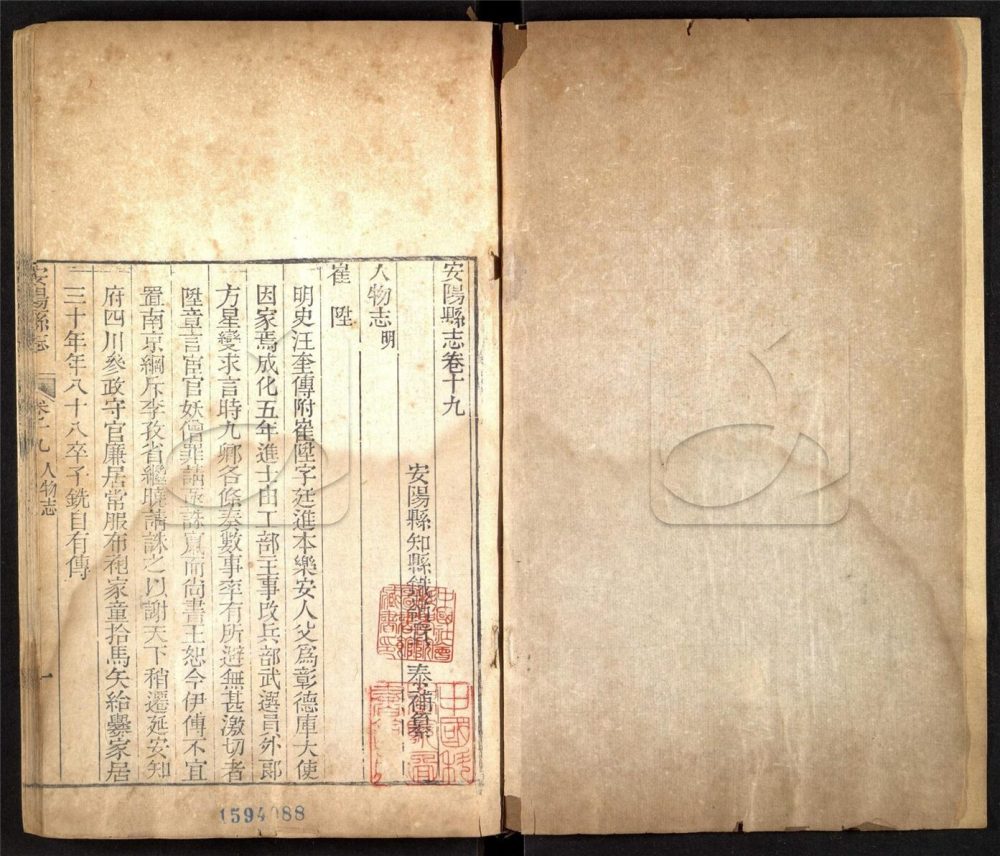 安陽縣志卷十九
安陽縣知縣 泰補纂
人物志明
崔陞
明史汪奎傳附崔陞字廷進本樂安人父爲彰德庫大使
因家焉成化五年進士由工部主事改兵部武選員外郎
方星變求言時九卿各條奏數事率有所避無甚激切者
陞章言宦官妖僧罪請亟誅竄而尚書王恕今伊傅不宜
置南京綱斥李孜省繼曉請誅之以謝天下稍遷延安知
府四川參政守官廉居常服布袍家童拾馬矢給爨家居
三十年年八十八卒子銑自有傳
安陽縣志
卷十九
人物志
一
1594088